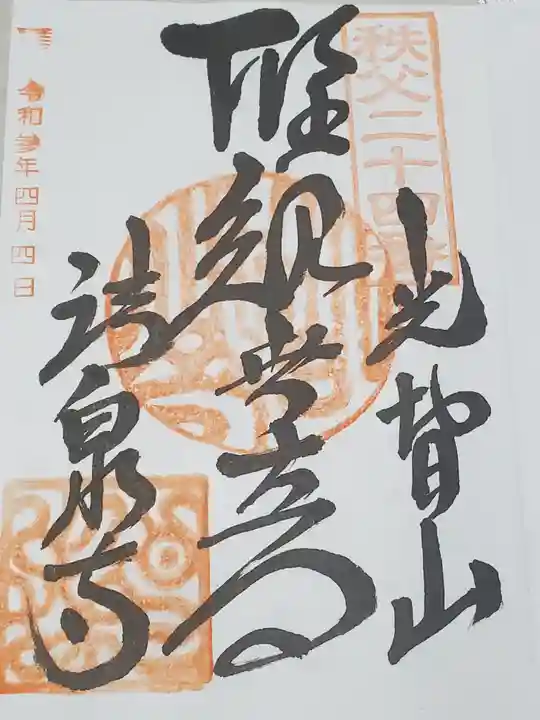 秩父二十四番
光智山
聖観世音
法泉寺
令和参年四月四日